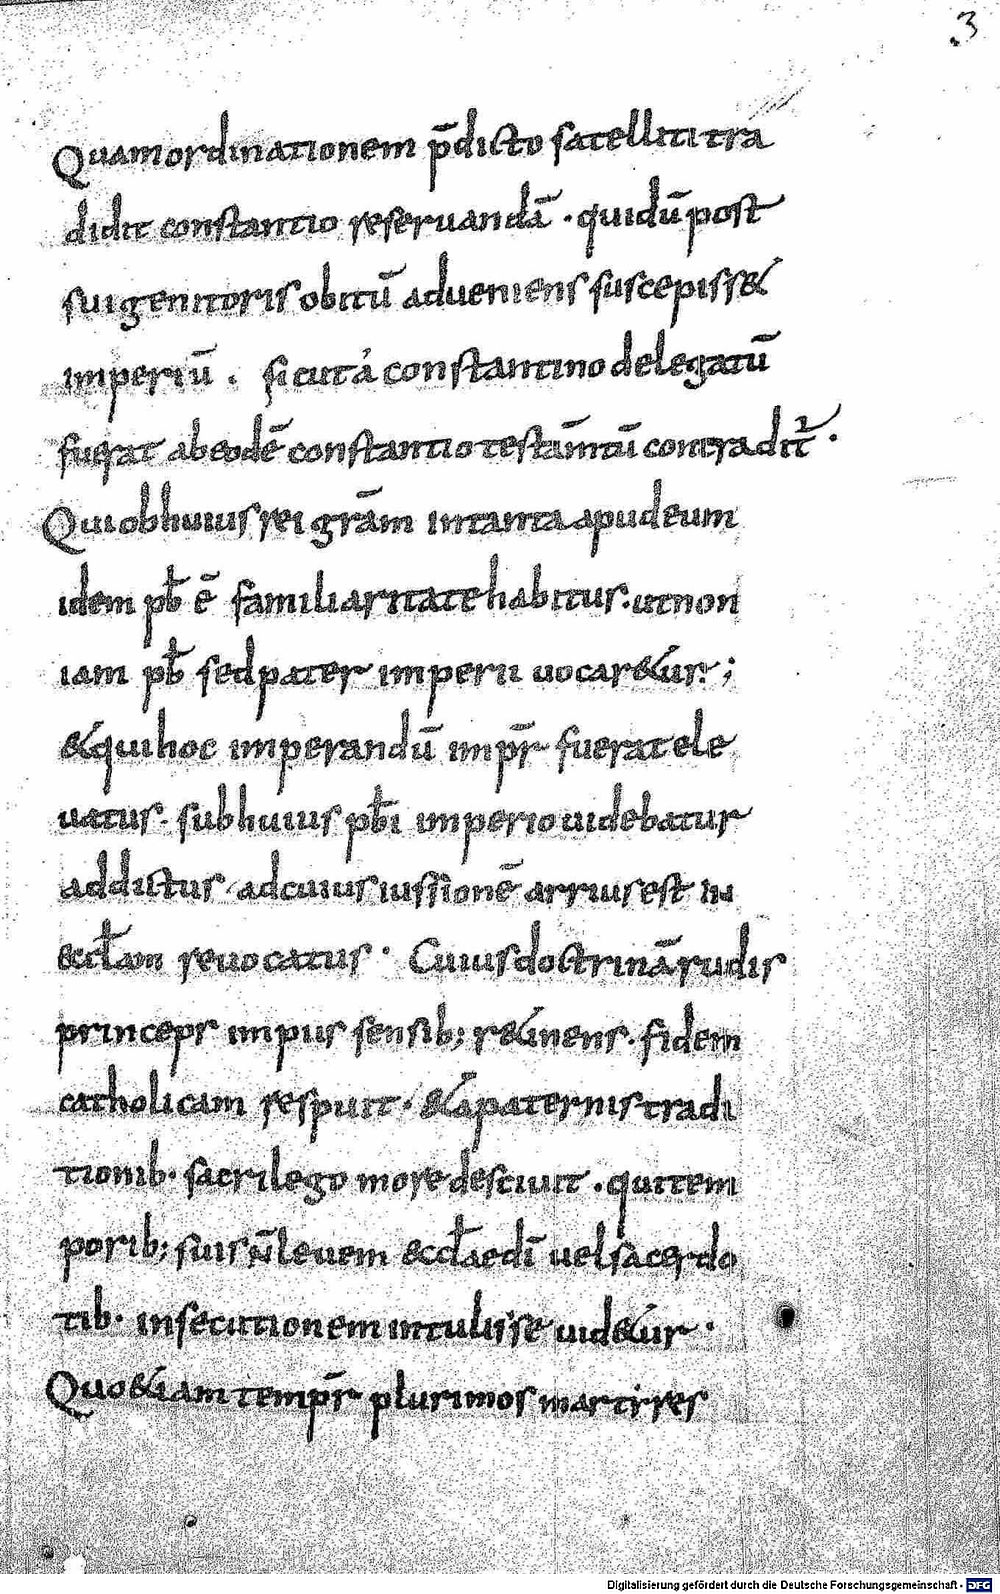 3
Quam ordinationem p̄dicto satelliti tra
didit constantio reseruandā · qui dū post
sui genitoris obitū adueniens suscepiss&
imperiū . sicut á constantino delegatū
fuerat ab eodē constantio testām̄tū contradit̃ ·
Qui ob huius rei grām in tanta apud eum
idem pƀ ē familiaritate habitus · ut non
iam pƀ sed pater imperii uocar&ur ;
& qui hoc imperandū imp̄r fuerat ele
uatus · sub huius pƀi imperio uidebatur
addictus · ad cuius iussionē arrius est in
eccƚam reuocatus · Cuius doctrinā rudis
princeps impiis sensib; r&inens · fidem
catholicam respuit · & á paternis tradi
tionib · sacrilego more desciuit · qui tem
porib; suis n̄ leuem eccƚae dī uel sacerdo
tib · insecutionem intulisse uid&ur ·
Quo &iam temp̄r plurimos martires
Digitalisierung gefördert durch die Deutsche Forschungsgemeinschaft - DFG